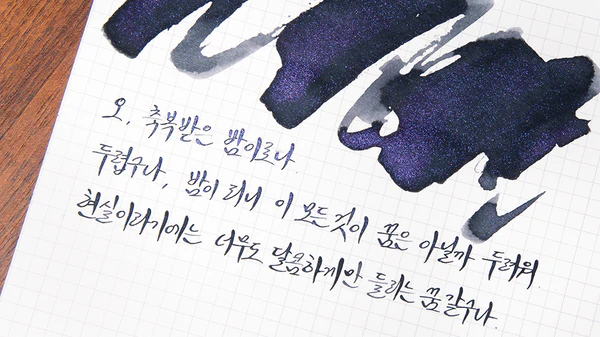 오, 축복받은 밤이로나
두렵구나, 밤이 되니 이 모든것이 꿈은 아닐까 두려워
현실이라기에는 너무도 달콤하지만 들리는 꿈같구나.